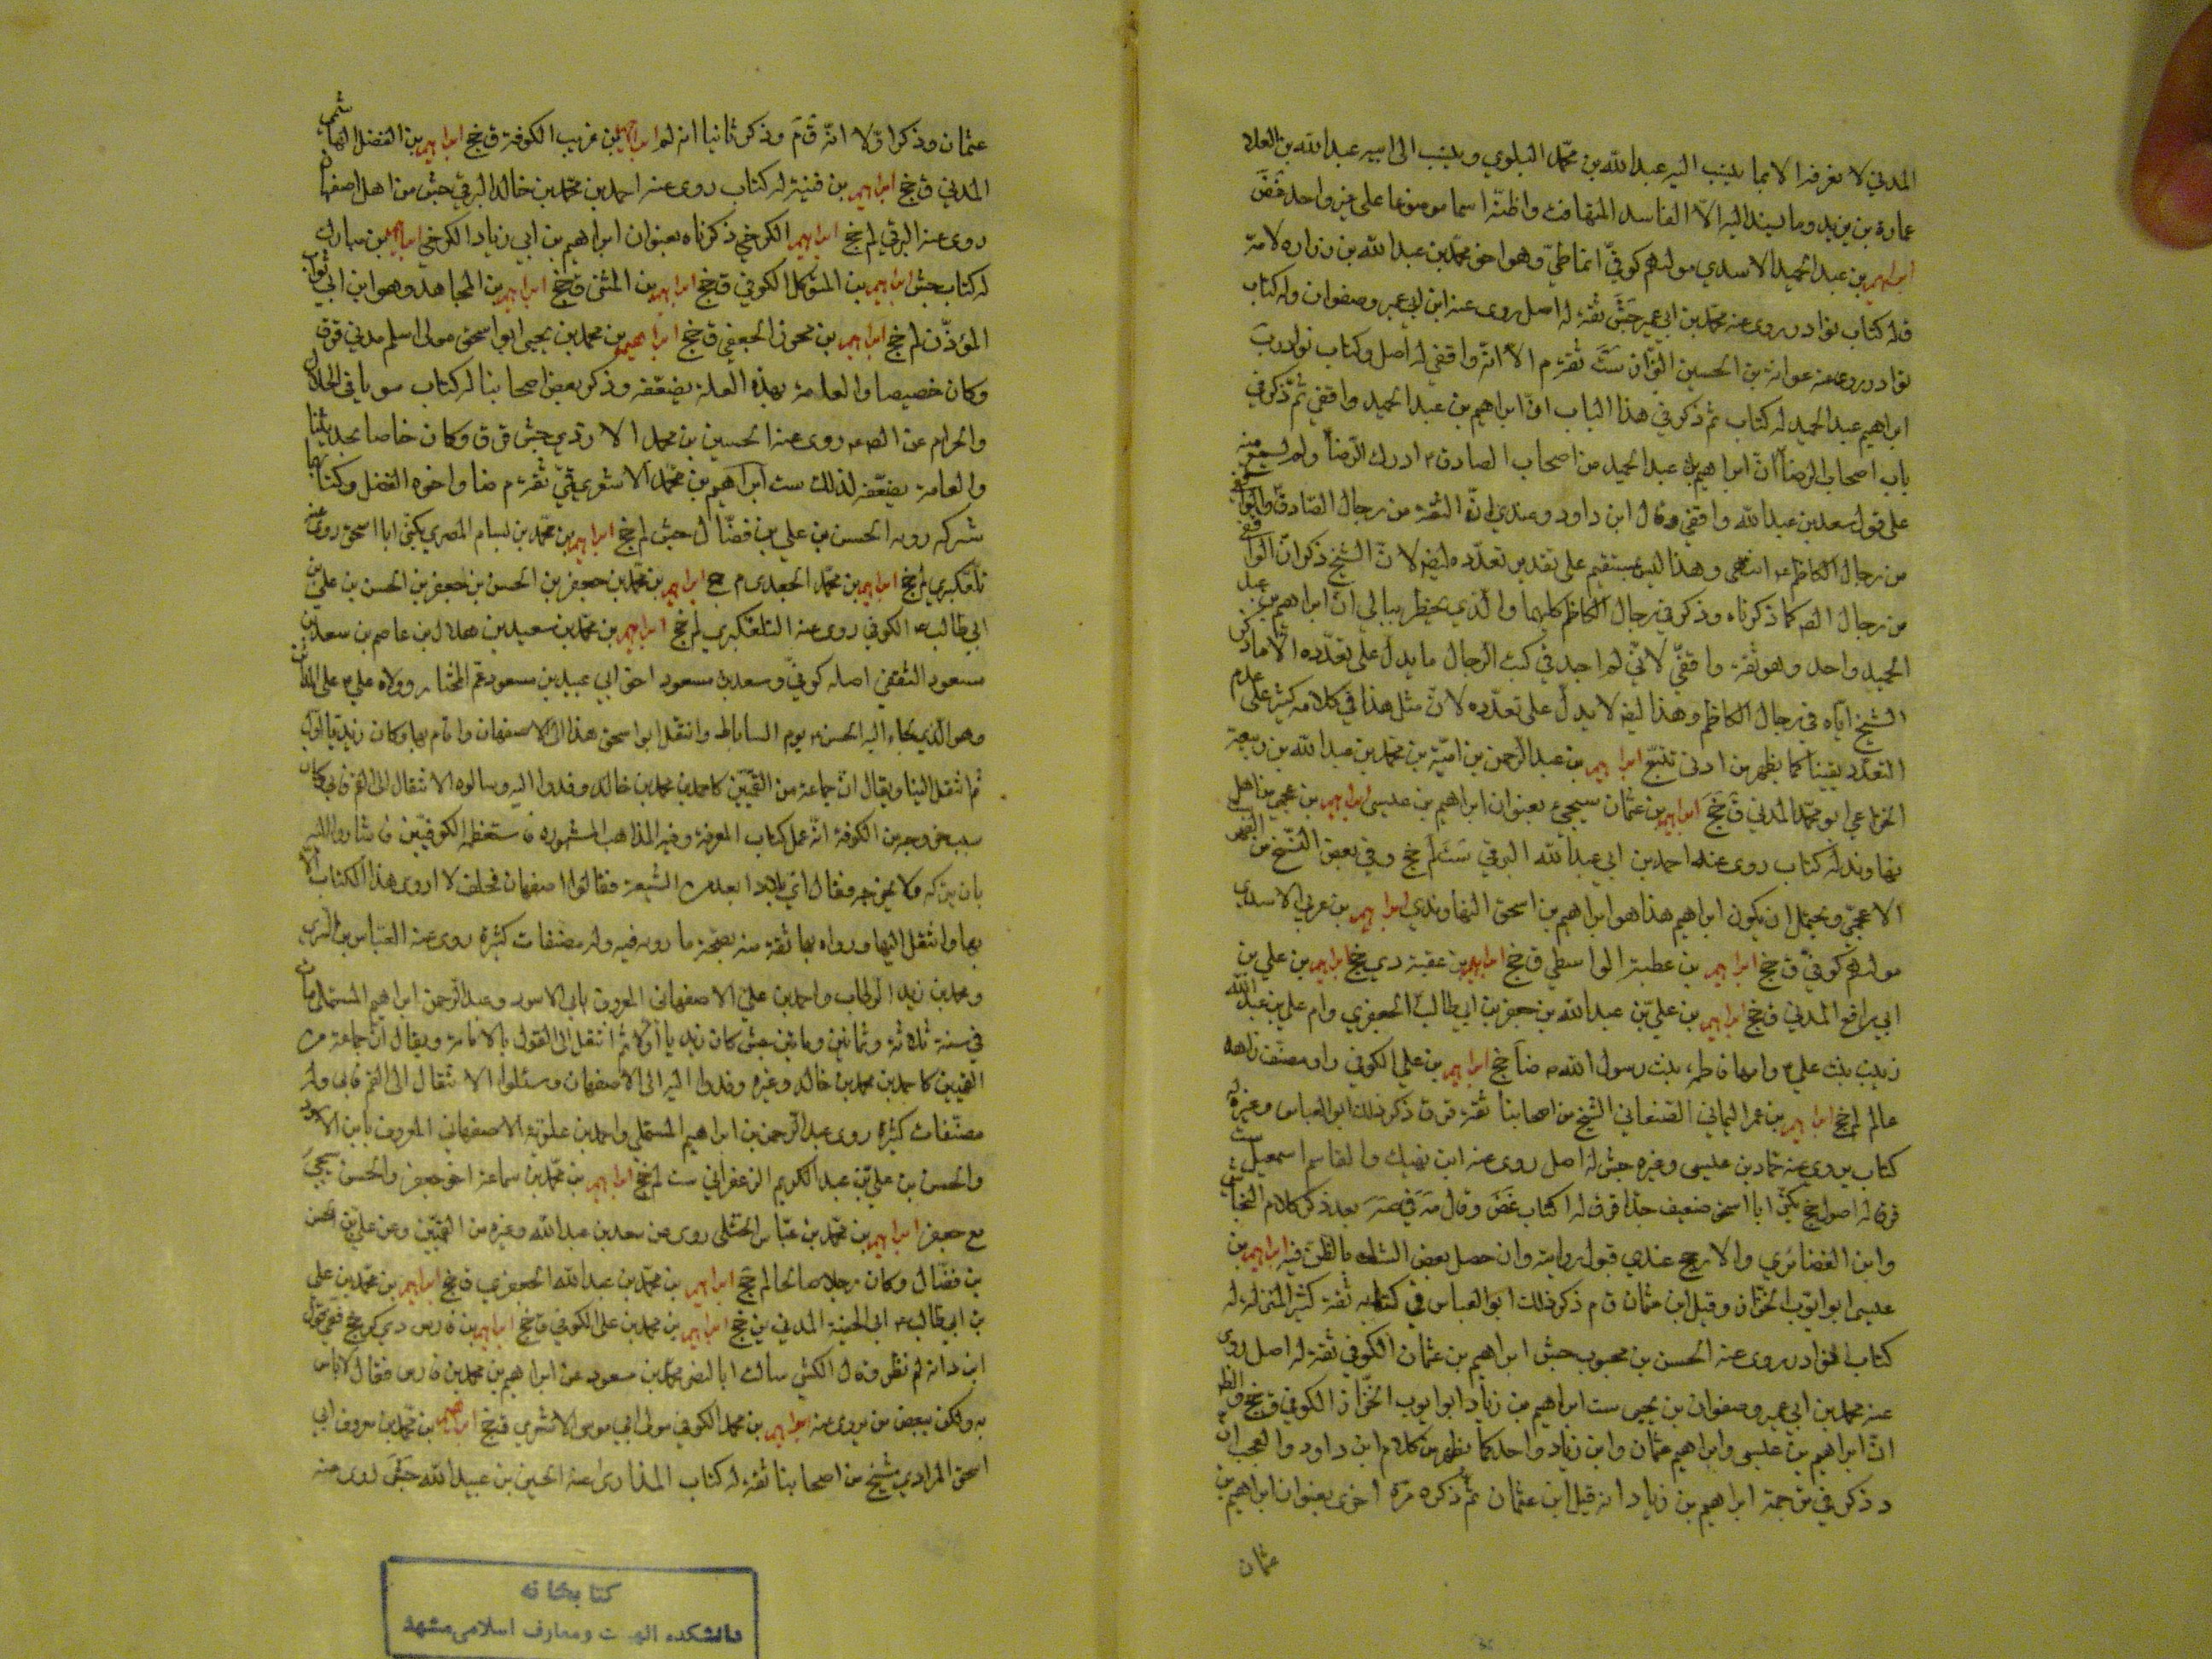 المدني لا نعرفه الا بما ينسب اليه عبدالله بن محمد البلوي وينسب الى ابيه عبدالله بن العلا
عمارة بن يزيد وما يسند اليه الا الفاسد المتهافت واظنه اسما موضوعا على غير واحد غض
ابراهيم بن عبدالحميد الاسدي مولاهم كوفي انماطي وهو اخو محمد بن عبدالله بن زراره لامه
له كتاب نوادر روى عنه محمد بن ابي عمير جش ثقة له اصل روى عنه ابن ابي عمير وصفوان وله كتاب
نوادر روى عنه عوانة بن الحسين البزاز ست ثقة م الا انه واقفي له اصل وكتاب نوادر ب
ابراهيم عبدالحميد له كتاب ثم ذكر في هذا الباب ان ابراهيم بن عبدالحميد واقفي ثم ذكر في
باب اصحاب الرضا ان ابراهيم بن عبدالحميد من اصحاب الصادق ادرك الرضا ولم يسمع منه
على قول سعد بن عبدالله واقفي وقال ابن داود وعندي ان الثقة من رجال الصادق والواقفي
من رجال الكاظم انتهى وهذا ليس بمستقيم على تقدير تعدده ايضا لان الشيخ ذكر ان الواقفي
من رجال الص كما ذكرناه وذكر في رجال الكاظم كليهما والذي يخطر ببالي ان ابراهيم بن عبد
الحميد واحد وهو ثقة واقفي لاني لم اجد في كتب الرجال ما يدل على تعدده الا ما ذكر
الشيخ اياه في رجال الكاظم وهذا ايضا لا يدل على تعدده لان مثل هذا في كلامه كثير على عدم
التعدد يقينا كما يظهر من ادنى تتبع ابراهيم بن عبدالرحمن بن امية بن محمد بن عبدالله بن ربيعة
الخزاعي ابو محمد المدني ق جخ ابراهيم بن عثمان سيجيء بعنوان ابراهيم بن عيسى ابراهيم بن عجمي من اهل
نهاوند له كتاب روى عنه احمد بن ابي عبدالله البرقي ست لم جخ وفي بعض النسخ من
الاعجمي ويحتمل ان يكون ابراهيم هذا هو ابراهيم بن اسحق النهاوندي ابراهيم بن عربي الاسدي
مولاهم كوفي ق جخ ابراهيم بن عطية الواسطي ق جخ ابراهيم بن عقبة دي جخ ابراهيم بن علي بن
ابي رافع المدني ق جخ ابراهيم بن علي بن عبدالله بن جعفر بن ابي طالب الجعفري وام علي بن عبدالله
زينب بنت علي وامها فاطمه بنت رسول الله ضا جخ ابراهيم بن علي الكوفي راو مصنف زاهد
عالم لم جخ ابراهيم بن عمر اليماني الصنعاني الشيخ من اصحابنا ثقة قر ق ذكر ذلك ابو العباس وغيره له
كتاب يروي عنه حماد بن عيسى وغيره جش له اصل روى عنه ابن نهيك والقاسم اسمعيل ست
قر ق له اصول جخ يكنى ابا اسحق ضعيف جدا قر ق له كتاب غض وقال مة في صه بعد ذكر كلام النجاشي
وابن الغضائري والارجح عندي قبول روايته وان حصل بعض الشك بالطعن فيه ابراهيم بن
عيسى ابو ايوب الخزاز وقيل ابن عثمان ق م ذكر ذلك ابو العباس في كتابه ثقة كثير المنزلة له
كتاب النوادر روى عنه الحسن بن محبوب جش ابراهيم بن عثمان الكوفي ثقة له اصل روى
عنه محمد بن ابي عمير وصفوان بن يحيى ست ابراهيم بن زياد ابو ايوب الخزاز الكوفي ق جخ والظ
ان ابراهيم بن عيسى وابراهيم عثمان وابن زياد واحد كما يظهر من كلام ابن داود والعجب ان
د ذكر في ترجمة ابراهيم بن زياد انه قيل ابن عثمان ثم ذكره مرة اخرى بعنوان ابراهيم بن
عثمان
عثمان وذكر اولا انه ق م وذكر ثانيا انه لم ابراهيم بن غريب الكوفة ق جخ ابراهيم بن الفضل الهاشمي
المدني ق جخ ابراهيم بن قتيبة له كتاب روى عنه احمد بن محمد بن خالد البرقي جش من اهل اصفهان
روى عنه البرقي لم جخ ابراهيم الكرخي ذكرناه بعنوان ابراهيم بن ابي زياد الكرخي ابراهيم بن مبارك
له كتاب جش ابراهيم بن المتوكل الكوفي ق جخ ابراهيم بن المثنى ق جخ ابراهيم بن المجاهد وهو ابن ابي ثواب
المؤذن لم جخ ابراهيم بن محرز الجعفي ق جخ ابراهيم بن محمد بن يحيى ابو اسحق مولى اسلم مدني قر ق
وكان خصيصا والعامة بهذه العلة يضعفه وذكر بعض اصحابنا له كتاب مبوبا في الحلال
والحرام عن الص روى عنه الحسين بن محمد الازدي جش قر ق وكان خاصا بحديثنا
والعامة يضعفه لذلك ست ابراهيم بن محمد الاشعري قمي ثقة م ضا واخوه الفضل وكتابهما
شركه رويه الحسن بن علي بن فضال جش لم جخ ابراهيم بن محمد بن بسام المصري يكنى ابا اسحق روى عنه
تلعكبري لم جخ ابراهيم بن محمد الجعدي م جخ ابراهيم بن محمد بن جعفر بن الحسن بن جعفر بن الحسن بن علي بن
ابي طالب الكوفي روى عنه التلعكبري لم جخ ابراهيم بن محمد بن سعيد بن هلال بن عاصم بن سعد بن
مسعود الثقفي اصله كوفي وسعد بن مسعود اخو ابي عبيد بن مسعود عم المختار وولاه علي على المداين
وهو الذي لجاء اليه الحسن يوم الساباط وانتقل ابو اسحق هذا الى الاصفهان واقام بها وكان زيديا اولا
ثم انتقل الينا ويقال ان جماعة من القميين كاحمد بن محمد بن خالد وفدوا اليه وسالوه الانتقال الى القم فابى وكان
سبب خروجه من الكوفة انه عمل كتاب المعرفة وفيه المذاهب المشهوره فاستعظمه الكوفيون فاشاروا اليه
بان يتركه ولا يخرجه فقال اي بلاد ابعد من الشيعة فقالوا اصفهان فحلف لا اروي هذا الكتاب الا
بها وانتقل اليها ورواه بها ثقة منه بصحة ما رويه فيه وله مصنفات كثيرة روى عنه العباس بن السري
ومحمد بن زيد الرطاب واحمد بن علي الاصفهاني المعروف بابي الاسود وعبدالرحمن ابراهيم المستملي مات
في سنة ثلاثة وثمانين ومايتين جش كان زيديا اولا ثم انتقل الى القول بالامامة ويقال ان جماعة من
القميين كاحمد بن محمد بن خالد وغيره وفدوا اليه الى الاصفهان وسئلوا الانتقال الى القم فابى وله
مصنفات كثيرة روى عبدالرحمن بن ابراهيم المستملي واحمد بن علوية الاصفهاني المعروف بابن الاسود
والحسن بن علي بن عبد الكريم الزعفراني ست لم جخ ابراهيم بن محمد بن سماعة اخو جعفر والحسن سيجيء
مع جعفر ابراهيم بن محمد بن عباس الختلي روى عن سعد بن عبدالله وغيره من القميين وعن علي بن الحسن
بن فضال وكان رجلا صالحا لم جخ ابراهيم بن محمد بن عبدالله الجعفري ق جخ ابراهيم بن محمد بن علي
بن ابي طالب ابن الحنفية المدني ين جخ ابراهيم بن محمد بن علي الكوفي ق جخ ابراهيم بن فارس دي كر جخ
ابن دانه لم نظر وقال الكشي سالت ابا النضر محمد بن مسعود عن ابراهيم بن محمد بن فارس فقال لا باس
به ولكن ببعض من يروى عنه ابراهيم بن محمد الكوفي مولى ابي موسى الاشعري ق جخ ابراهيم بن محمد بن معروف ابي
اسحق المذاري شيخ من اصحابنا ثقة له كتاب المزار روى عنه الحسين بن عبيدالله جش روى عنه
كتابخانه
دانشکده الهیات ومعارف اسلامی مشهد